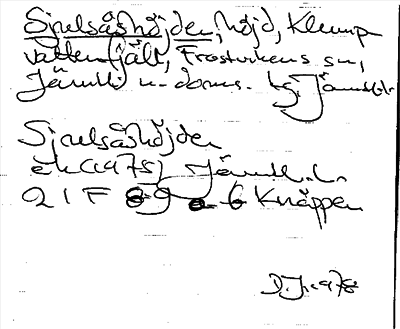 Sjulsåshöjden, höjd, Klump
vattenfjäll, Frostvikens sn,
Jämtl. n. doms. hg, Jämtl. l.
Sjulsåshöjden
ek (1975) Jämtl. l.
21F 89 a-b Knäppen
D.J. 1978